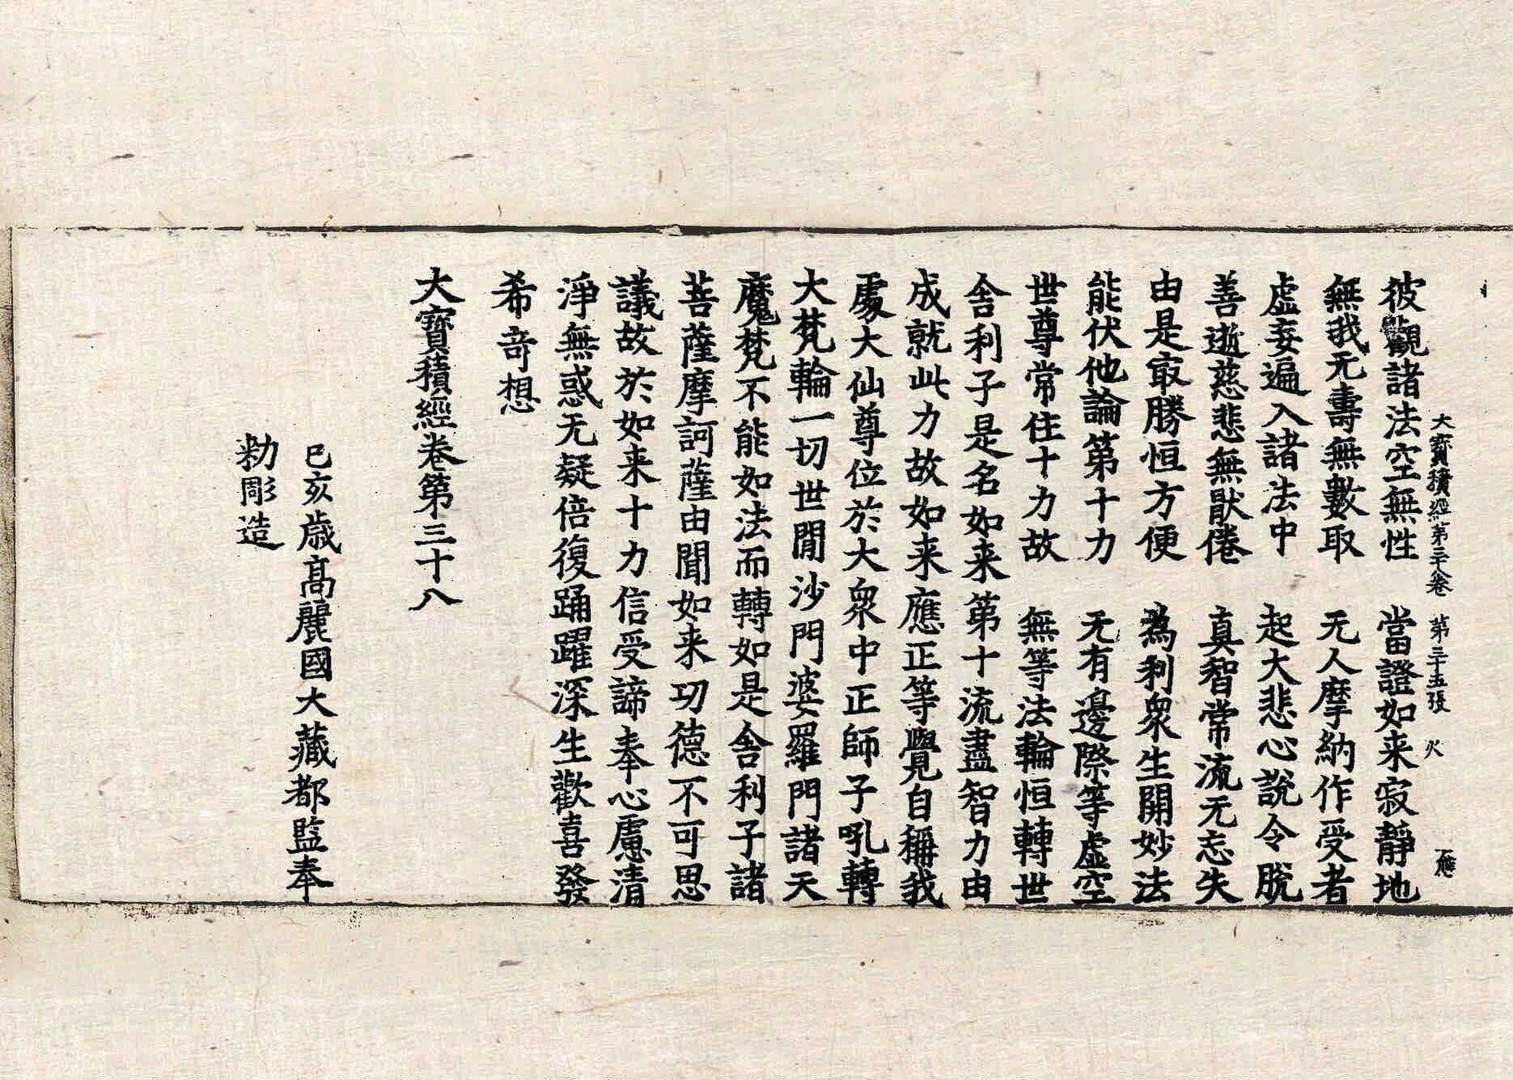 大寶積經第三十八卷 第三十五張 火
彼觀諸法空無性 當證如来寂靜地
無我无壽無數取 无人摩納作受者
虛妄遍入諸法中 起大悲心說令脫
善逝慈悲無猒倦 真智常流无忘失
由是冣勝恒方便 為利衆生開妙法
能伏他論第十力 无有邊際等虛空
世尊常住十力故 無等法輪恒轉世
舍利子是名如来第十流盡智力由
成就此力故如来應正等覺自稱我
處大仙尊位於大衆中正師子吼轉
大梵輪一切世閒沙門婆羅門諸天
魔梵不能如法而轉如是舍利子諸
菩薩摩訶薩由聞如来功德不可思
議故於如来十力信受諦奉心慮清
淨無惑无疑倍復踊躍深生歡喜發
希奇想
大寶積經卷第三十八
已亥歲高麗國大藏都監奉
勑彫造